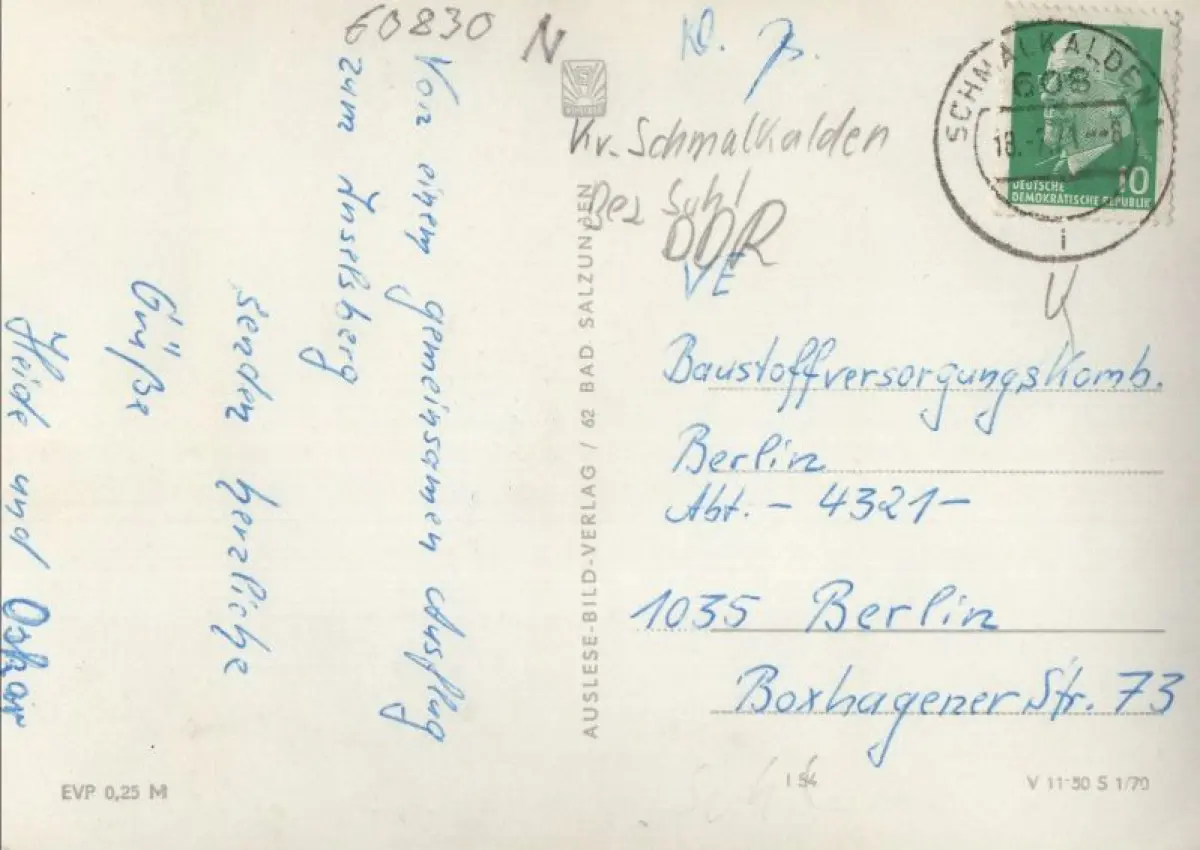 60830 N
Von einem gemeinsamen Ausflug
zum Inselsberg
senden herzliche
Grüße
Heide und Oskar
EVP 0,25 M
AUSLESE-BILD-VERLAG / 62 BAD SALZUNGEN
Kr. Schmalkalden
Bez Suhl
DDR
SCHMALKALDEN 1
608
18.-7.71--8
i
10
DEUTSCHE
DEMOKRATISCHE REPUBLIK
VE
Baustoffversorgungskomb.
Berlin
Abt. - 4321-
1035 Berlin
Boxhagener Str. 73
I 54
V 11-50 S 1/70